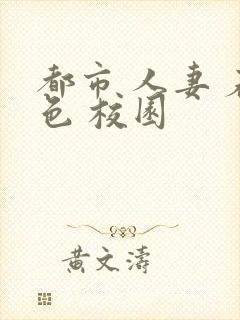 都市人妻
色校园
黄文涛